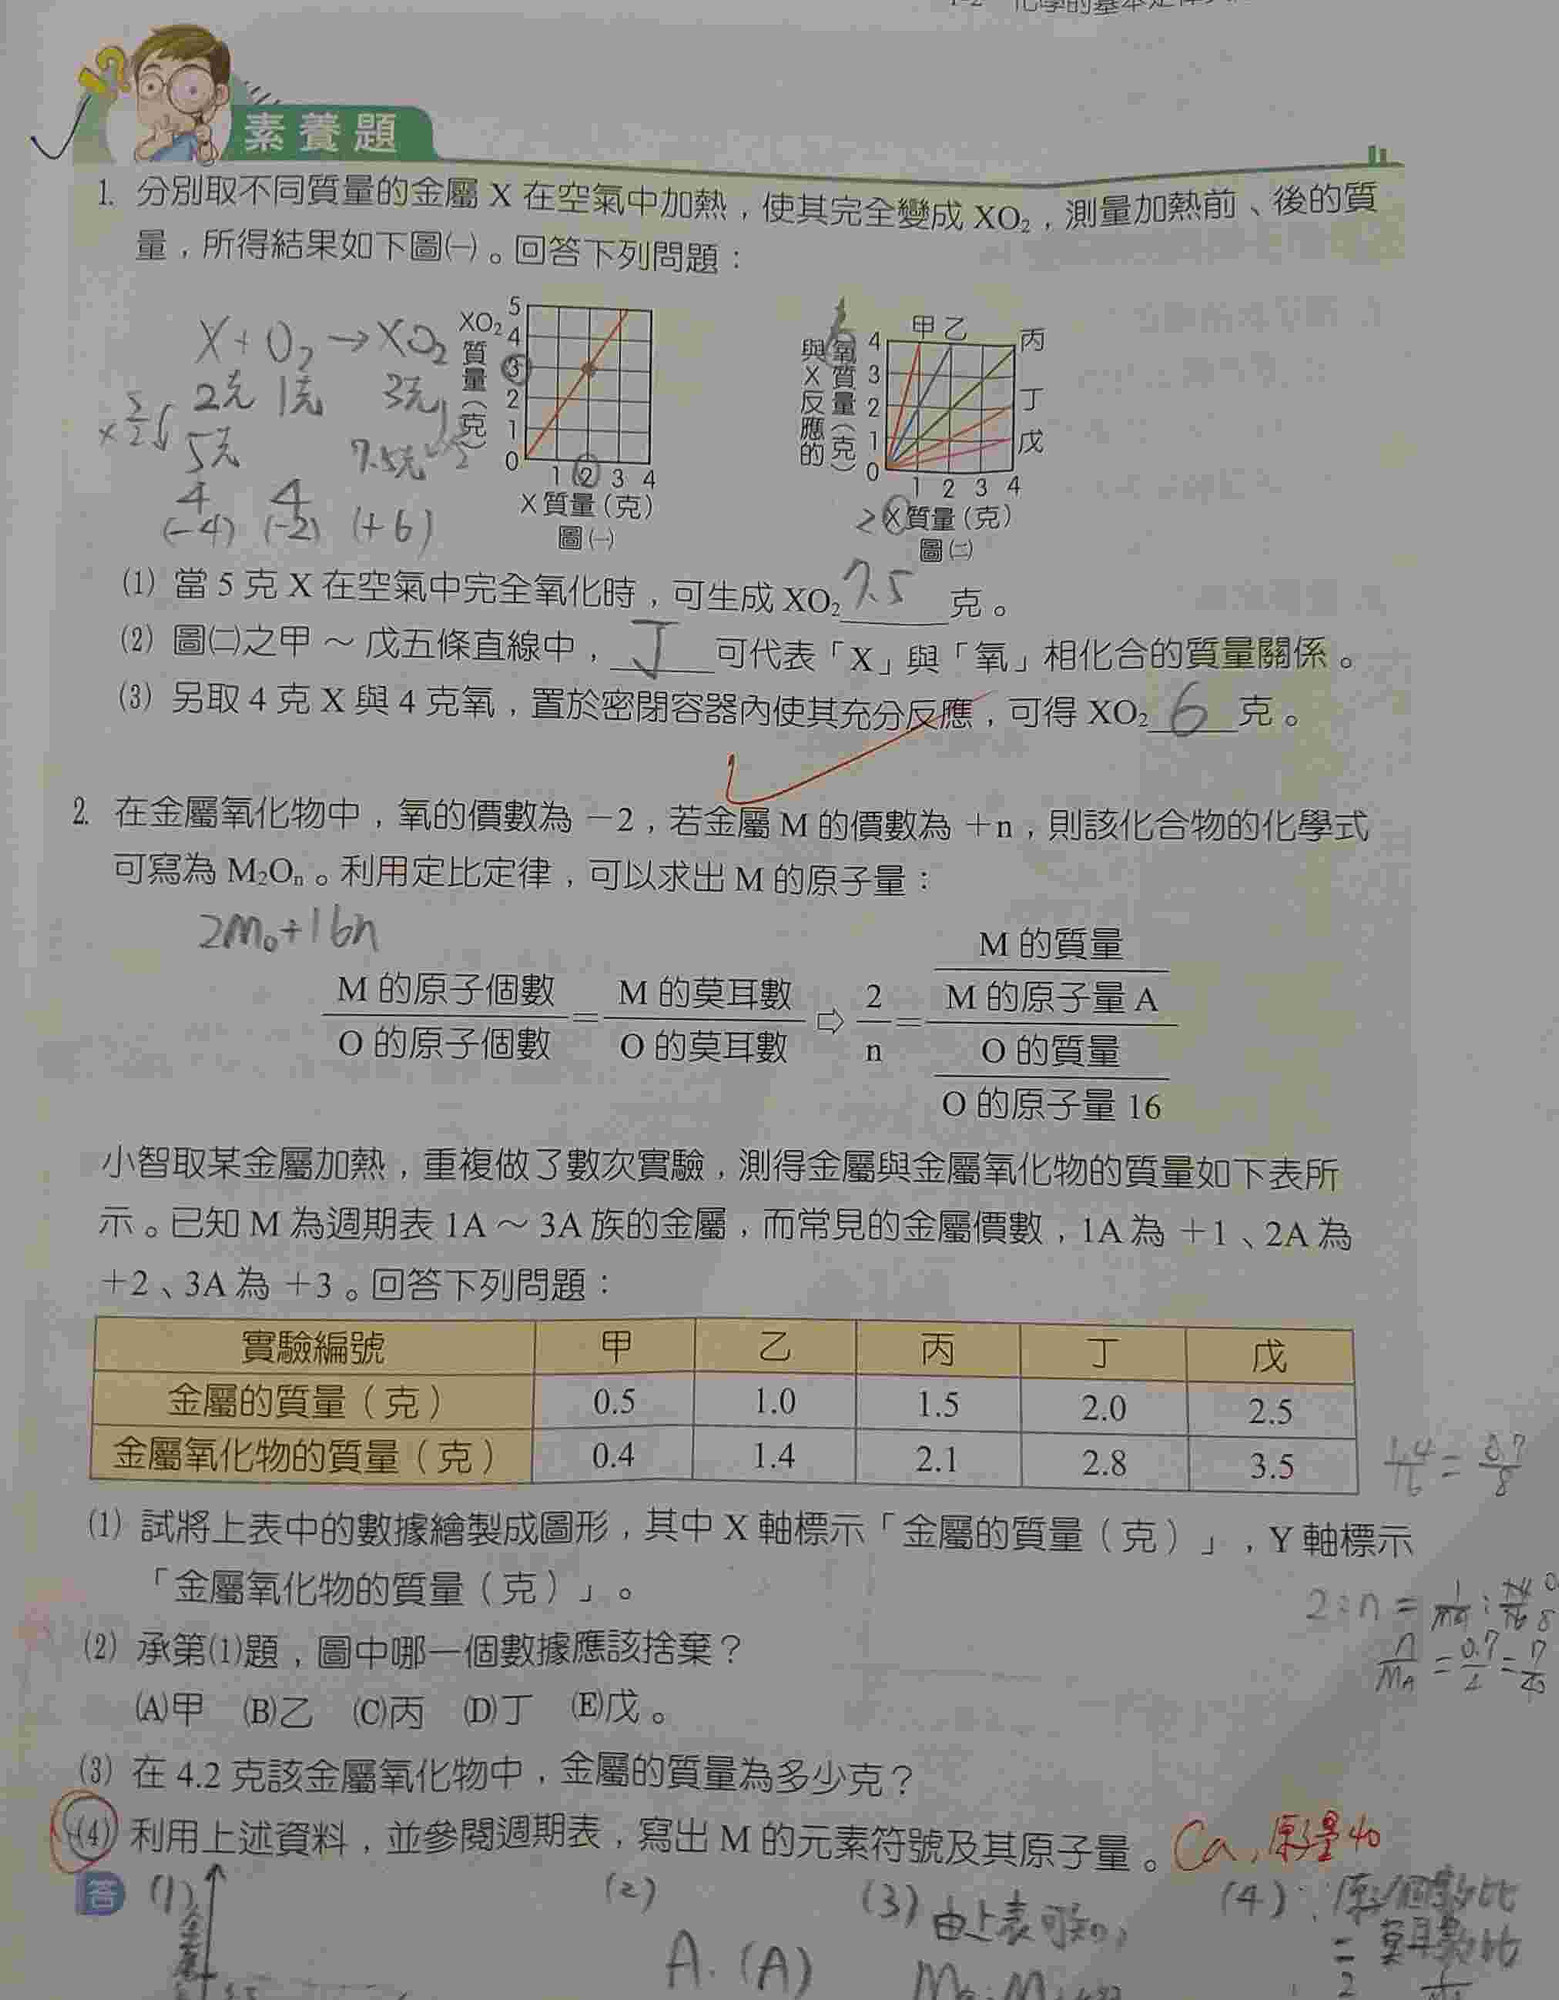 素養題
1. 分別取不同質量的金屬 X 在空氣中加熱，使其完全變成 XO₂，測量加熱前、後的質
量，所得結果如下圖㈠。回答下列問題：
X + O₂ → XO₂
2克 1克 3克
5克 7.5克
4 4
(-4) (-2) (+6)
XO₂質量（克）
5
4
3
2
1
0
1 2 3 4
X 質量（克）
圖㈠
與X反應的氧質量（克）
甲 乙 丙
丁
戊
4
3
2
1
0
1 2 3 4
X質量（克）
圖㈡
(1) 當 5 克 X 在空氣中完全氧化時，可生成 XO₂ 7.5 克。
(2) 圖㈡之甲～戊五條直線中，丁 可代表「X」與「氧」相化合的質量關係。
(3) 另取 4 克 X 與 4 克氧，置於密閉容器內使其充分反應，可得 XO₂ 6 克。
2. 在金屬氧化物中，氧的價數為 －2，若金屬 M 的價數為 ＋n，則該化合物的化學式
可寫為 M₂Oₙ。利用定比定律，可以求出 M 的原子量：
M 的原子個數 M 的莫耳數 2 M 的質量 M 的原子量 A
= ⇨ =
O 的原子個數 O 的莫耳數 n O 的質量 O 的原子量 16
小智取某金屬加熱，重複做了數次實驗，測得金屬與金屬氧化物的質量如下表所
示。已知 M 為週期表 1A～3A 族的金屬，而常見的金屬價數，1A 為 ＋1、2A 為
＋2、3A 為 ＋3。回答下列問題：
實驗編號 甲 乙 丙 丁 戊
金屬的質量（克） 0.5 1.0 1.5 2.0 2.5
金屬氧化物的質量（克） 0.4 1.4 2.1 2.8 3.5
(1) 試將上表中的數據繪製成圖形，其中 X 軸標示「金屬的質量（克）」，Y 軸標示
「金屬氧化物的質量（克）」。
(2) 承第(1)題，圖中哪一個數據應該捨棄？
(A)甲 (B)乙 (C)丙 (D)丁 (E)戊。
(3) 在 4.2 克該金屬氧化物中，金屬的質量為多少克？
(4) 利用上述資料，並參閱週期表，寫出 M 的元素符號及其原子量。Ca，原子量 40
答 (1) (2) (3) 由上表可知， (4) 原子個數比
A. (A) = 莫耳數比